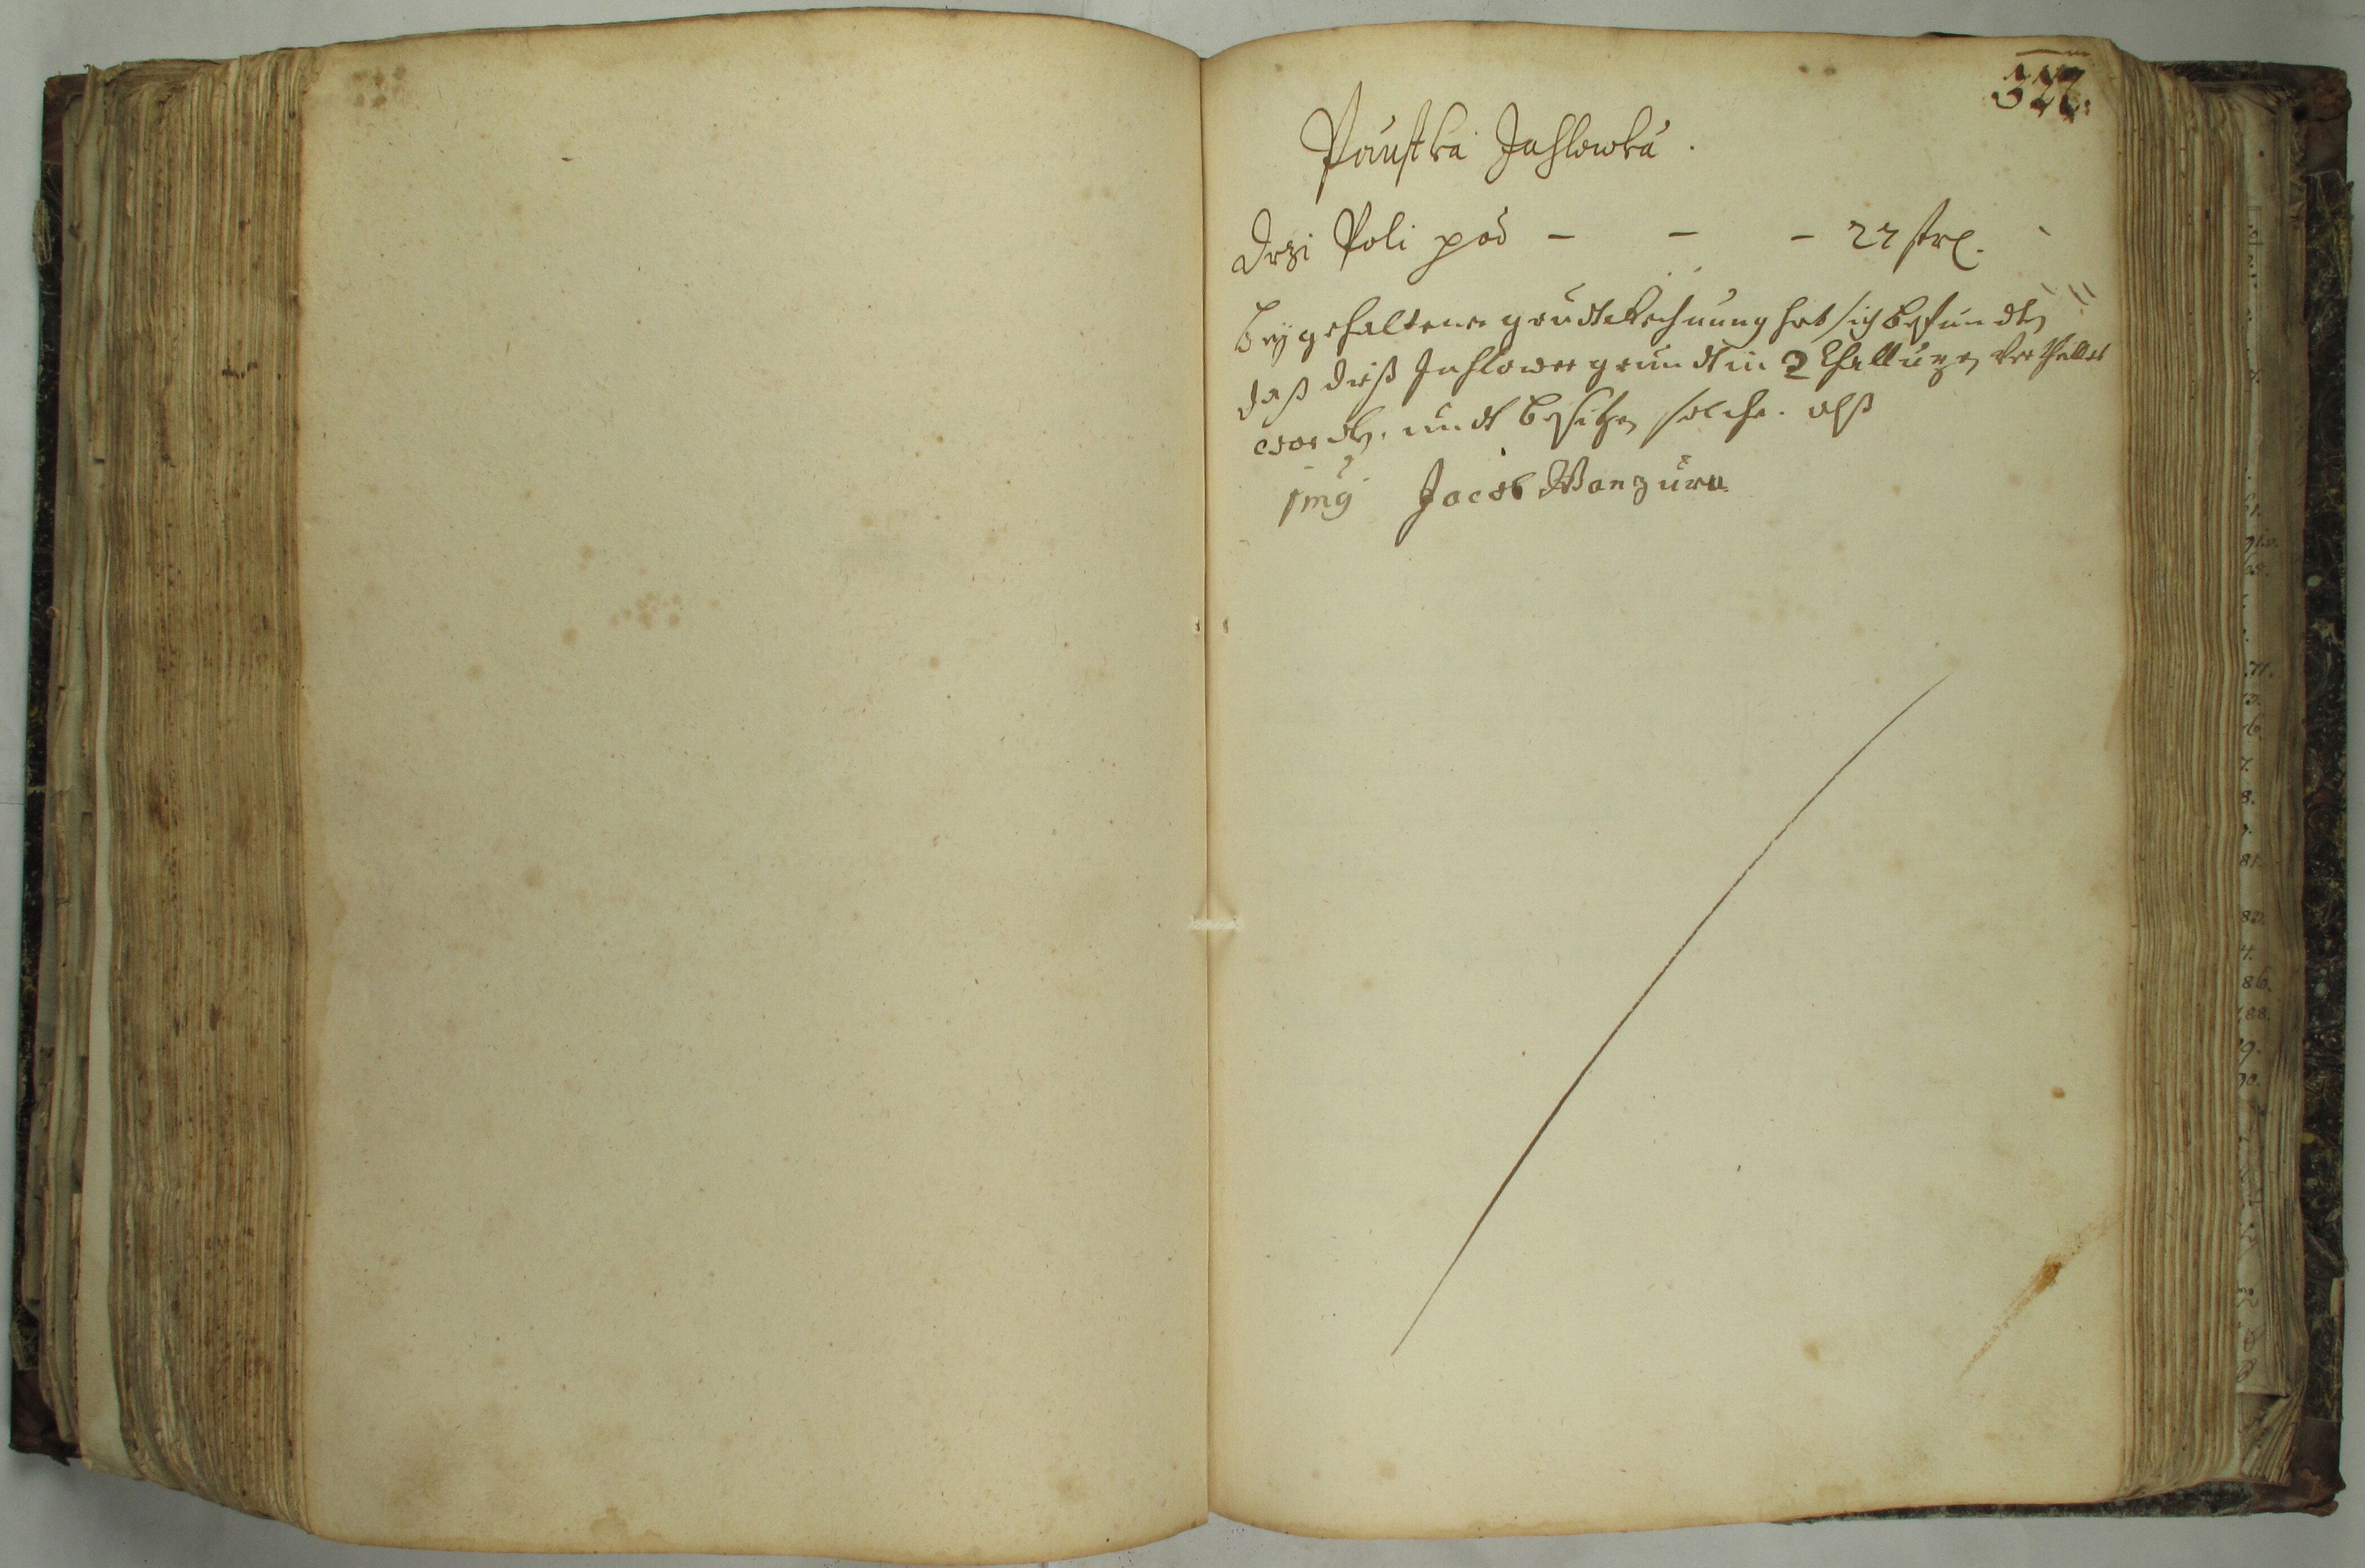 327.
Paustka Jahlowka.
Drzi Poli pod – – – 22 strl.
Bey gehaltener grundtRechnung hat sich befundten
daß dieß Jahlower grundt in 2 Theillungen vertheilet
worden. undt besitzen solche. alß
Jacob Wanzura